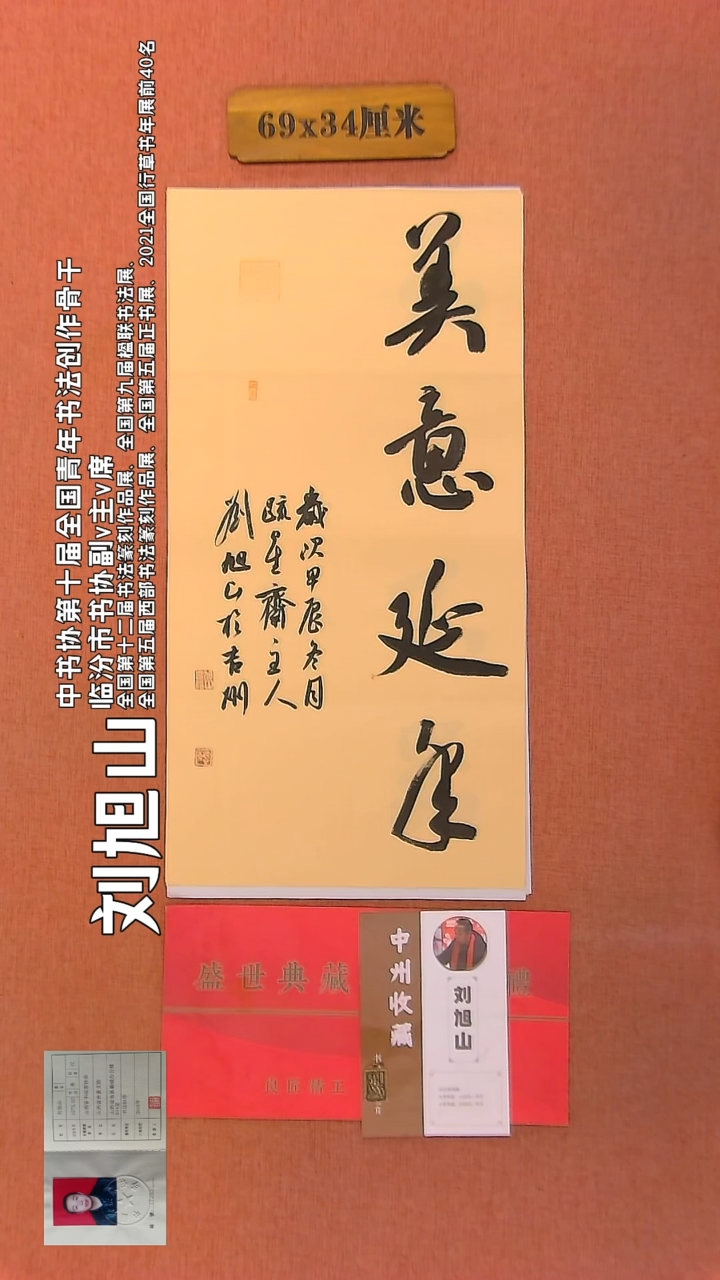 69x34厘米
中书协第十届全国青年书法创作骨干
临汾市书协副v主v席
全国第十二届书法篆刻作品展、全国第九届楹联书法展、
全国第五届西部书法篆刻作品展、全国第五届正书展、2021全国行草书年展前40名
刘旭山
美意延年
歲次甲辰冬月
齋主人
劉旭山於吉州
盛世典藏
禮
良匠精工
中州收藏
刘旭山